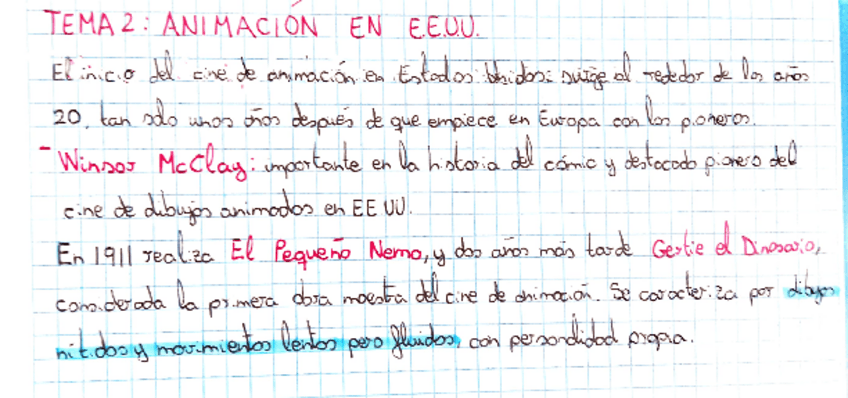 TEMA 2: ANIMACIÓN EN EE.UU.
El inicio del cine de animación en Estados Unidos: surge al rededor de los años
20, tan sólo unos años después de que empiece en Europa con los pioneros.
- Winsor McClay: importante en la historia del cómic y destacado pionero del
cine de dibujos animados en EE UU.
En 1911 realiza El Pequeño Nemo, y dos años más tarde Gertie el Dinosaurio,
considerada la primera obra maestra del cine de animación. Se caracteriza por dibujos
nítidos y movimientos lentos pero fluidos, con personalidad propia.